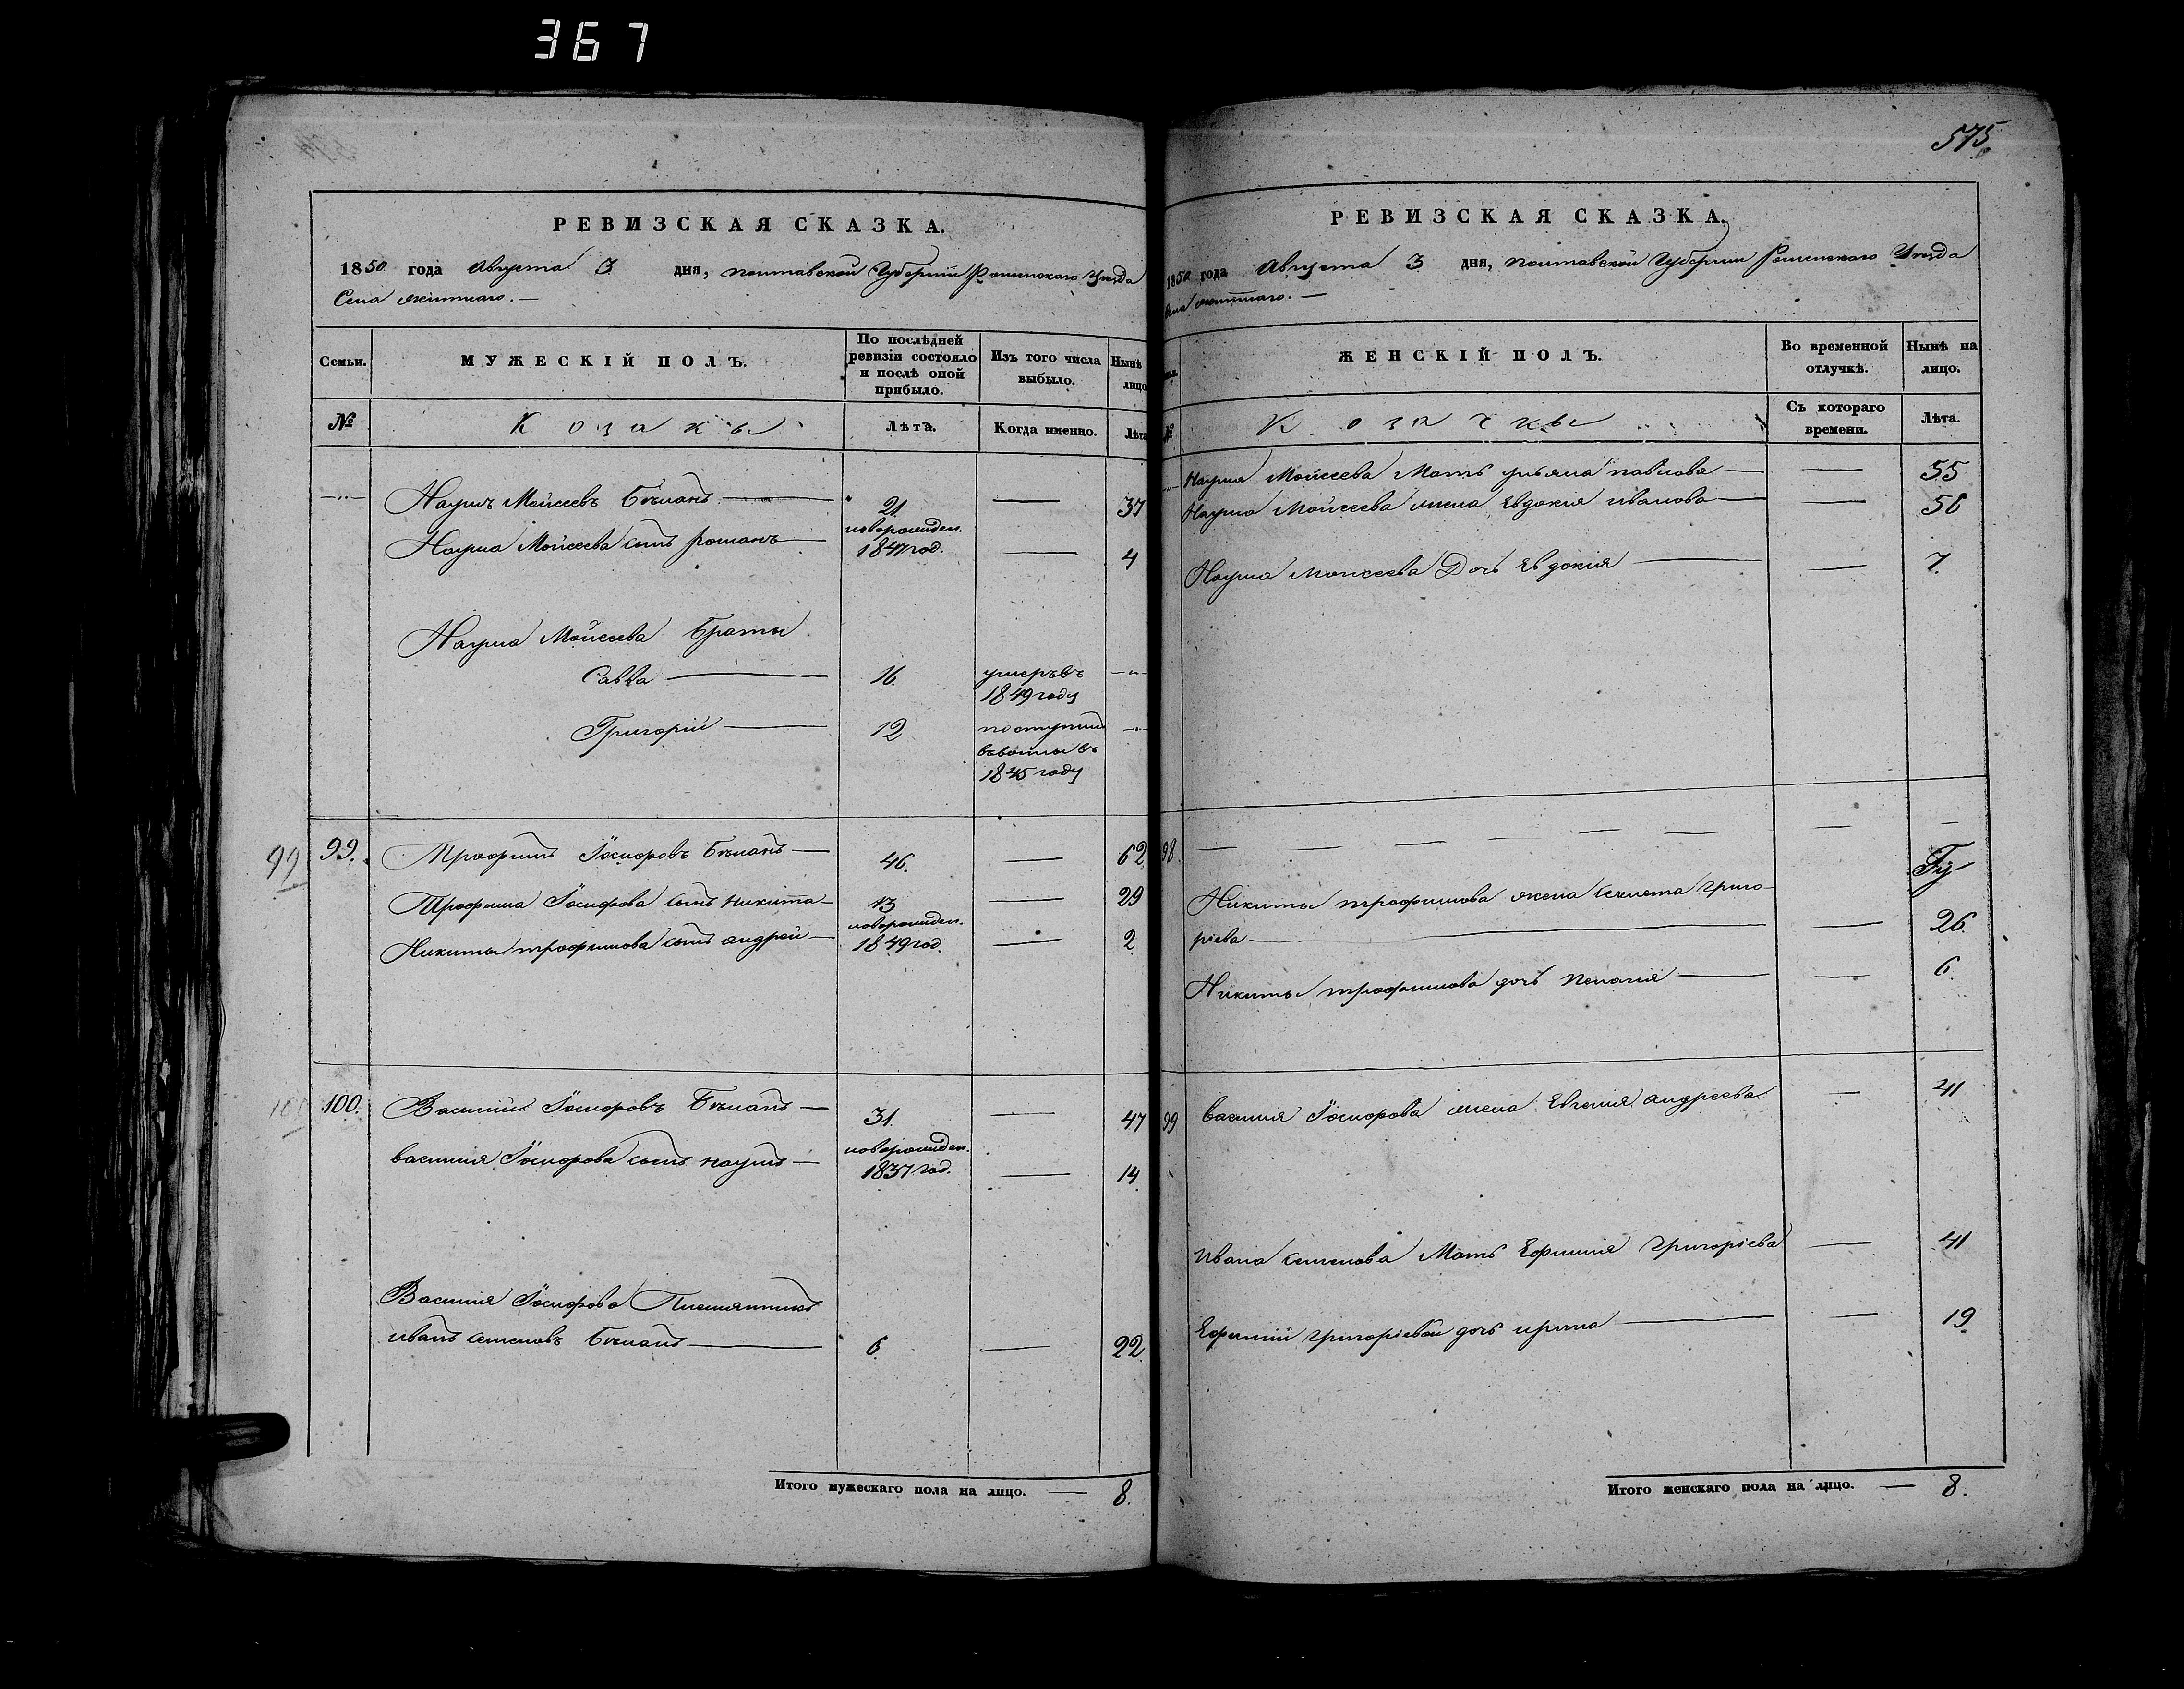 367
РЕВИЗСКАЯ СКАЗКА.
1850 года Августа 3 дня, полтавской Губернии Роменского Уезда
Села
Семьи.
МУЖЕСКІЙ ПОЛЪ.
По послѣдней ревизіи состояло и послѣ оной прибыло.
Изъ того числа выбыло.
Нынѣ лицо
№
Козаки
Лѣта.
Когда именно.
Лѣта
Наумъ Мойсеевъ Бѣланъ — 21. — 37
новорожден.
Наума Мойсеева сынъ романъ — 1847 год. — 4
Наума Мойсеева Браты
Савва — 16
умеръ въ
1849 году
Григорій — 12
поступил
въ
1845 году
99 99. Трофимъ Іосифовъ Бѣланъ — 46. — 62
Трофима Іосифова сынъ никита — 13 — 29
новорожден.
Никиты трофимова сынъ андрей — 1849 год. — 2
100 100. Василій Іосифовъ Бѣланъ — 31. — 47
новорожден.
василія Іосифова сынъ наумъ — 1837 год. — 14
Василія Іосифова Племянникъ
иванъ семеновъ Бѣланъ — 6. — 22
Итого мужескаго пола на лицо. — 8.
575
РЕВИЗСКАЯ СКАЗКА.
1850 года Августа 3 дня, полтавской Губернии Роменского Уезда
ЖЕНСКІЙ ПОЛЪ.
Во временной отлучкѣ.
Нынѣ на лицо.
№
Козачки
Съ котораго времени.
Лѣта.
Наума Мойсеева Мать ульяна павлова — — 55
Наума Мойсеева жена Евдокія иванова — —
Наума Мойсеева Дочь Евдокія — — 7.
98. — — — — — — — — —
Никиты трофимова жена Григо-
ріева — — 26
Никиты трофимова дочь пелагія — — 6.
99 василія Іосифова жена Евгенія андреева — 41
ивана семенова Мать Ефимія Григоріева — 41
Ефиміи григоріевой дочь ирина — — 19
Итого женскаго пола на лицо. — 8.